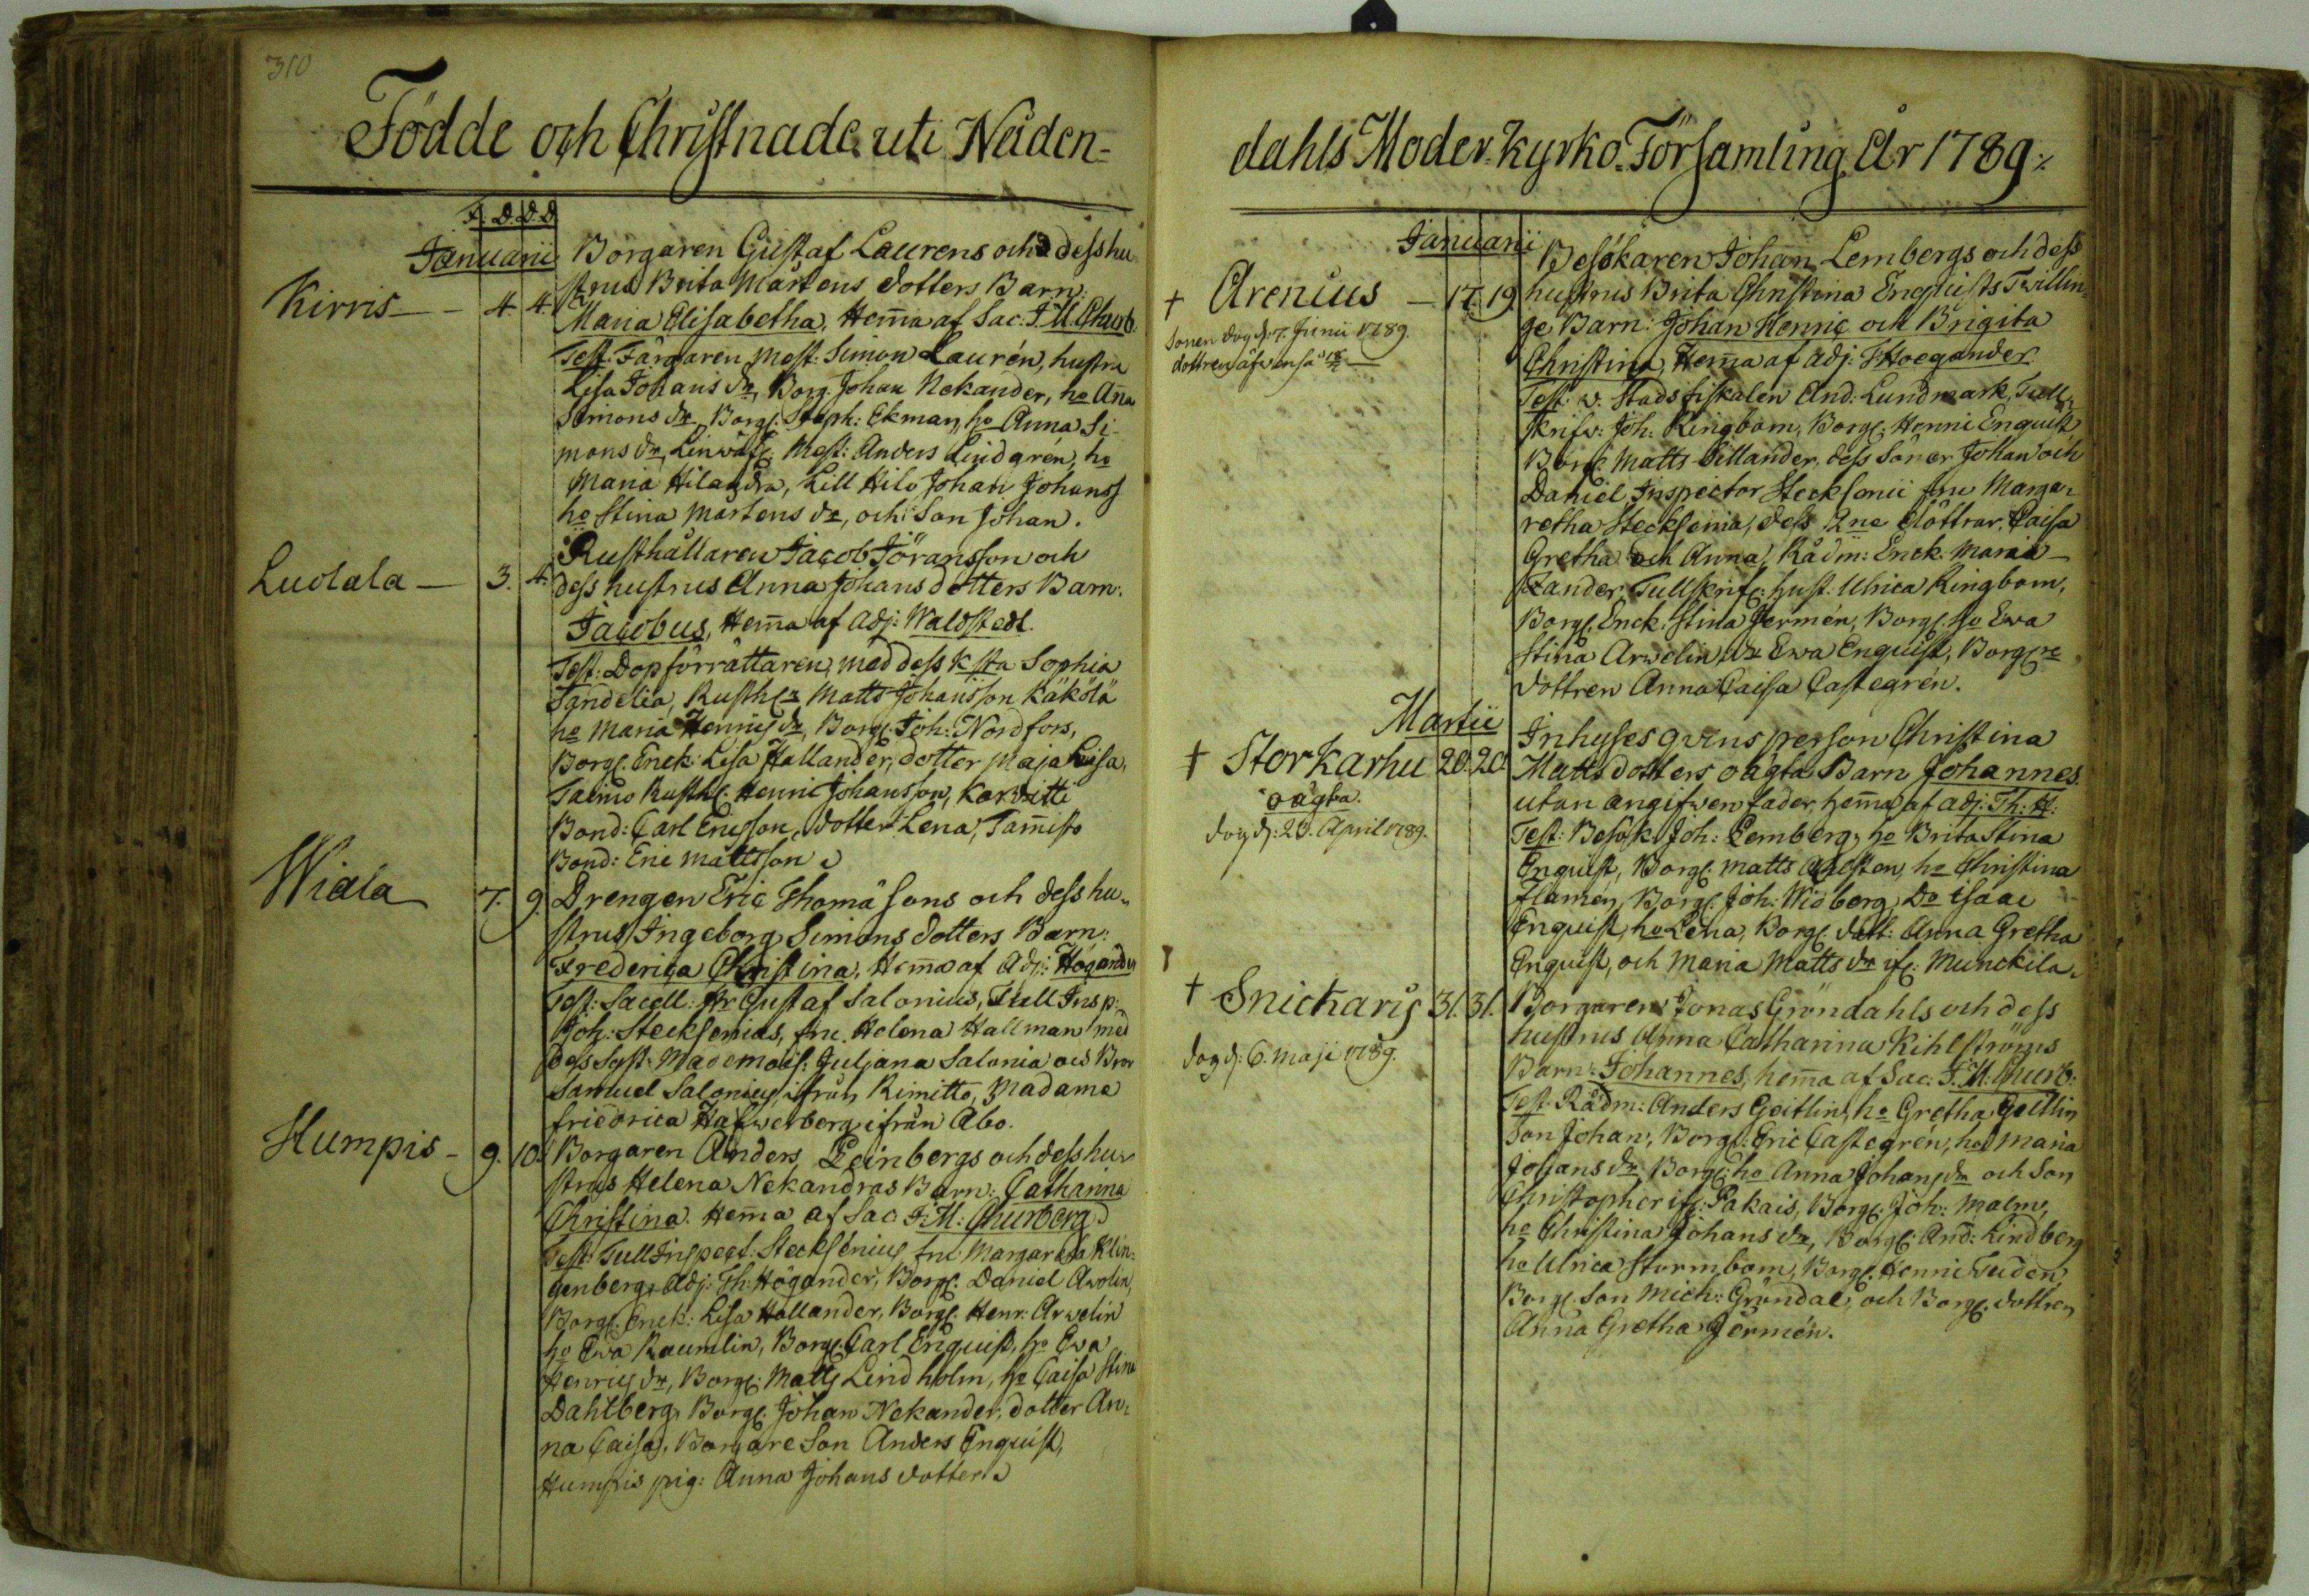 310
Födde och Christnade uti Nåden-
F. D. D. D.
Januarii
Borgaren Gustaf Laurens och dess hu
Kirris — 4. 4. strus Brita Mårtens dotters Barn:
Maria Elisabetha, Hem̃a af Sac: F. M. Churb:
Test: Färgaren Mest: Simon Laurén, hustru
Lisa Johans dr, Borg. Johan Nekander, ho Ana
Simons dr, Borg: Steph: Ekman, ho Anna Si-
mons dr, Linwäf: Mest: Anders Lindgrén, ho
Maria Hilandra, Lill Hilo Johan Johanss
ho Stina Mårtens dr, och Son Johan.
Rusthållaren Jacob Jöransson och
Luolala — 3. 4. dess hustrus Anna Johans dotters Barn:
Jacobus, Hem̃a af Adj: Waldstedt.
Test: Dopförrättaren, med dess K sta Sophia
Tandelia, Rusthr Matts Johansson Käkölä
ho Maria Henrics dr, Borg: Joh: Nordfors,
Borg. Enck: Lisa Hallander, dotter Maja Lisa,
Taimo Rusth: Henric Johansson, Korvitti
Bond: Carl Ericsson, dotter Lena, Tam̃isto
Bond: Eric Mattsson
Wiala 7. 9. Drengen Eric Thomæ sons och dess hu-
strus Ingeborg Simons dotters Barn:
Frederica Christina, Hem̃a af Adj: Högander
Test: Sacell: Hr Gustaf Salonius, Tull Insp:
Joh: Stecksenius, fru Helena Hallman med
dess Syst: Mademois: Juliana Salonia och Bror
Samuel Salonius ifrån Rimitto, Madame
Friedrica Hafwerberg ifrån Abo.
Humpis - 9. 10. Borgaren Anders Leinbergs och dess hu-
strus Helena Nekandras Barn: Catharina
Christina. Hem̃a af Sac F. M: Churberg
Test: Tull Inspect: Stecksenius, fru Margareta Klin-
genberg, Adj: Th: Högander, Borg: Daniel Awolin,
Borg: Enck: Lisa Hallander, Borg: Henr: Arwelin
ho Ewa Raumlin, Borg: Carl Enquist, ho Ewa
Henrics dr, Borg: Matts Lindholm, ho Caisa Stina
Dahlberg, Borg: Johan Nekander, dotter An-
na Caisa, Borgare Son Anders Enquist,
Humpis pig: Anna Johans dotter
dahls Moder-Kyrko-Församling År 1789.
Januarii
Besökaren Johan Lembergs och dess
† Arenius — 17. 19. hustrus Brita Christina Enquists Twillin-
Sonen dog d: 7. Junii 1789.
ge Barn: Johan Henric och Brigita
dottren äfwenså
Christina, Hem̃a af Adj: T Hoegander
Test: v. Stads fiskalen And: Lundmark, Tull-
skrifw: Joh: Ringbom, Borg: Henric Enquist,
Borg: Matts Sillander, dess Söner Johan och
Daniel, Inspector Stecksenii fru Marga-
retha Stecksenia, dess 2ne döttrar, Caisa
Gretha och Anna, Rådm: Enck. Maria
Zander, Tullskrif: hust: Ulrica Ringbom,
Borg: Enck: Stina Jermén, Borg. ho Ewa
Stina Arwelin, dr Ewa Enquist, Borgre
dottren Anna Caisa Castegrén.
Martii
Inhyses qvins person Christina
† Storkarhu 20. 20. Matts dotters oägta Barn Johannes
oägta.
utan angifwen fader, hem̃a af Adj: Th: H:
dog d: 23. April 1789.
Test: Besök: Joh: Lemberg, ho Brita Stina
Enquist, Borg: Matts, ho Christina
Flamén, Borg: Joh: Widberg, Do Isaac
Enquist, ho Lena, Borg: dott: Anna Gretha
Enquist, och Maria Matts dr if: Munckila.
† Snickaris 31. 31. Borgaren Jonas Gröndahls och dess
dog d: 6. Maji 1789.
hustrus Anna Catharina Kihlströms
Barn: Johannes, hem̃a af Sac: F. M: Churb:
Test: Rådm: Anders Geitlin, ho Gretha Geitlin
Son Johan, Borg: Eric Castegrén, ho Maria
Johans dr, Borg: ho Anna Johans dr och Son
Christopher if: Pakais, Borg: Joh: Malm,
ho Christina Johans dr, Borg: And: Lindberg
ho Ulrica Stormbom, Borg. Henric Tudén,
Borg: Son Mich: Gröndal, och Borg: dottren
Anna Gretha Jermén.